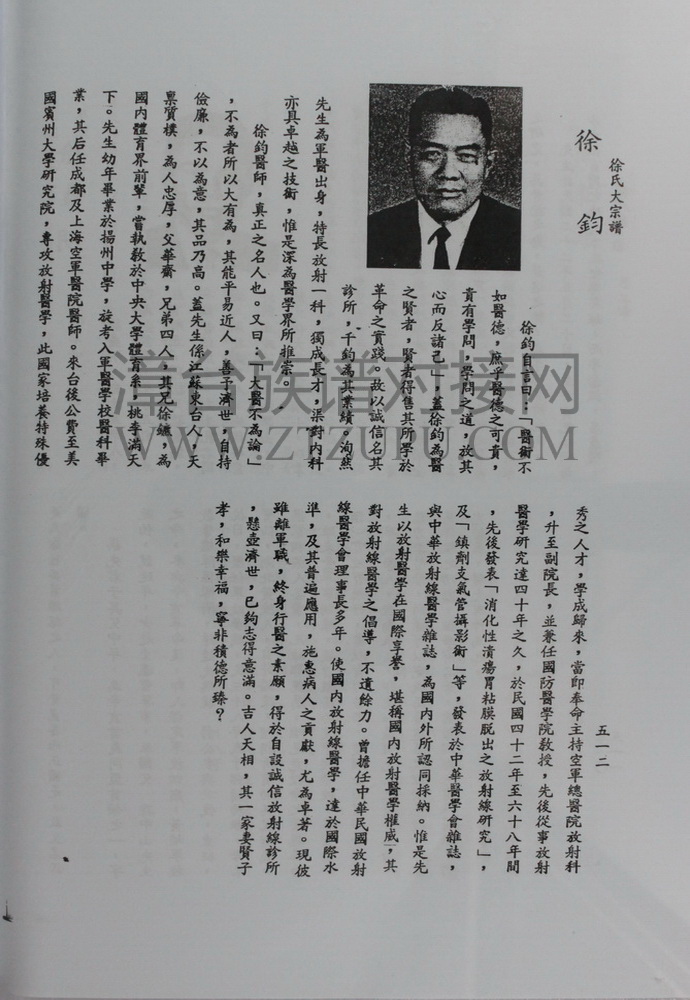 徐氏大宗譜
徐鈞
徐鈞自言曰：「醫術不
如醫德，庶乎醫德之可貴，
貴有學問，學問之道，放其
心而反諸己」，蓋徐鈞為醫
之賢者，賢者得售其所學於
革命之實踐。故以誠信名其
診所，千鈞為其業績。洵然
先生為軍醫出身，特長放射一科，獨成長才，渠對內科
亦具卓越之技術，惟是深為醫學界所推崇。
徐鈞醫師，真正之名人也。又曰：「大醫不為論」
，不為者所以大有為，其能平易近人，善予濟世，自持
儉廉，不以為意，其品乃高。蓋先生係江蘇東台人，天
稟質樸，為人忠厚，父華齋，兄弟四人，其兄徐鑣，為
國內體育界前輩，嘗執教於中央大學體育系，桃李滿天
下。先生幼年畢業於揚州中學，旋考入軍醫學校醫科畢
業，其后任成都及上海空軍醫院醫師。來台後公費至美
國賓州大學研究院，專攻放射醫學，此國家培養特殊優
五一二
秀之人才，學成歸來，當即奉命主持空軍總醫院放射科
，升至副院長，並兼任國防醫學院教授，先後從事放射
醫學研究達四十年之久，於民國四十二年至六十八年間
，先後發表「消化性潰瘍胃粘膜脫出之放射線研究」，
及「鎮劑支氣管攝影術」等，發表於中華醫學會雜誌，
與中華放射線醫學雜誌，為國內外所認同採納。惟是先
生以放射醫學在國際享譽，堪稱國內放射醫學權威，其
對放射線醫學之倡導，不遺餘力。曾擔任中華民國放射
線醫學會理事長多年。使國內放射線醫學，達於國際水
準，及其普遍應用，施惠病人之貢獻，尤為卓著。現彼
雖離軍職，終身行醫之素願，得於自設誠信放射線診所
，懸壺濟世，已夠志得意滿。吉人天相，其一家妻賢子
孝，和樂幸福，寧非積德所臻？
漳台族谱对接网
WWW.ZTZUPU.COM